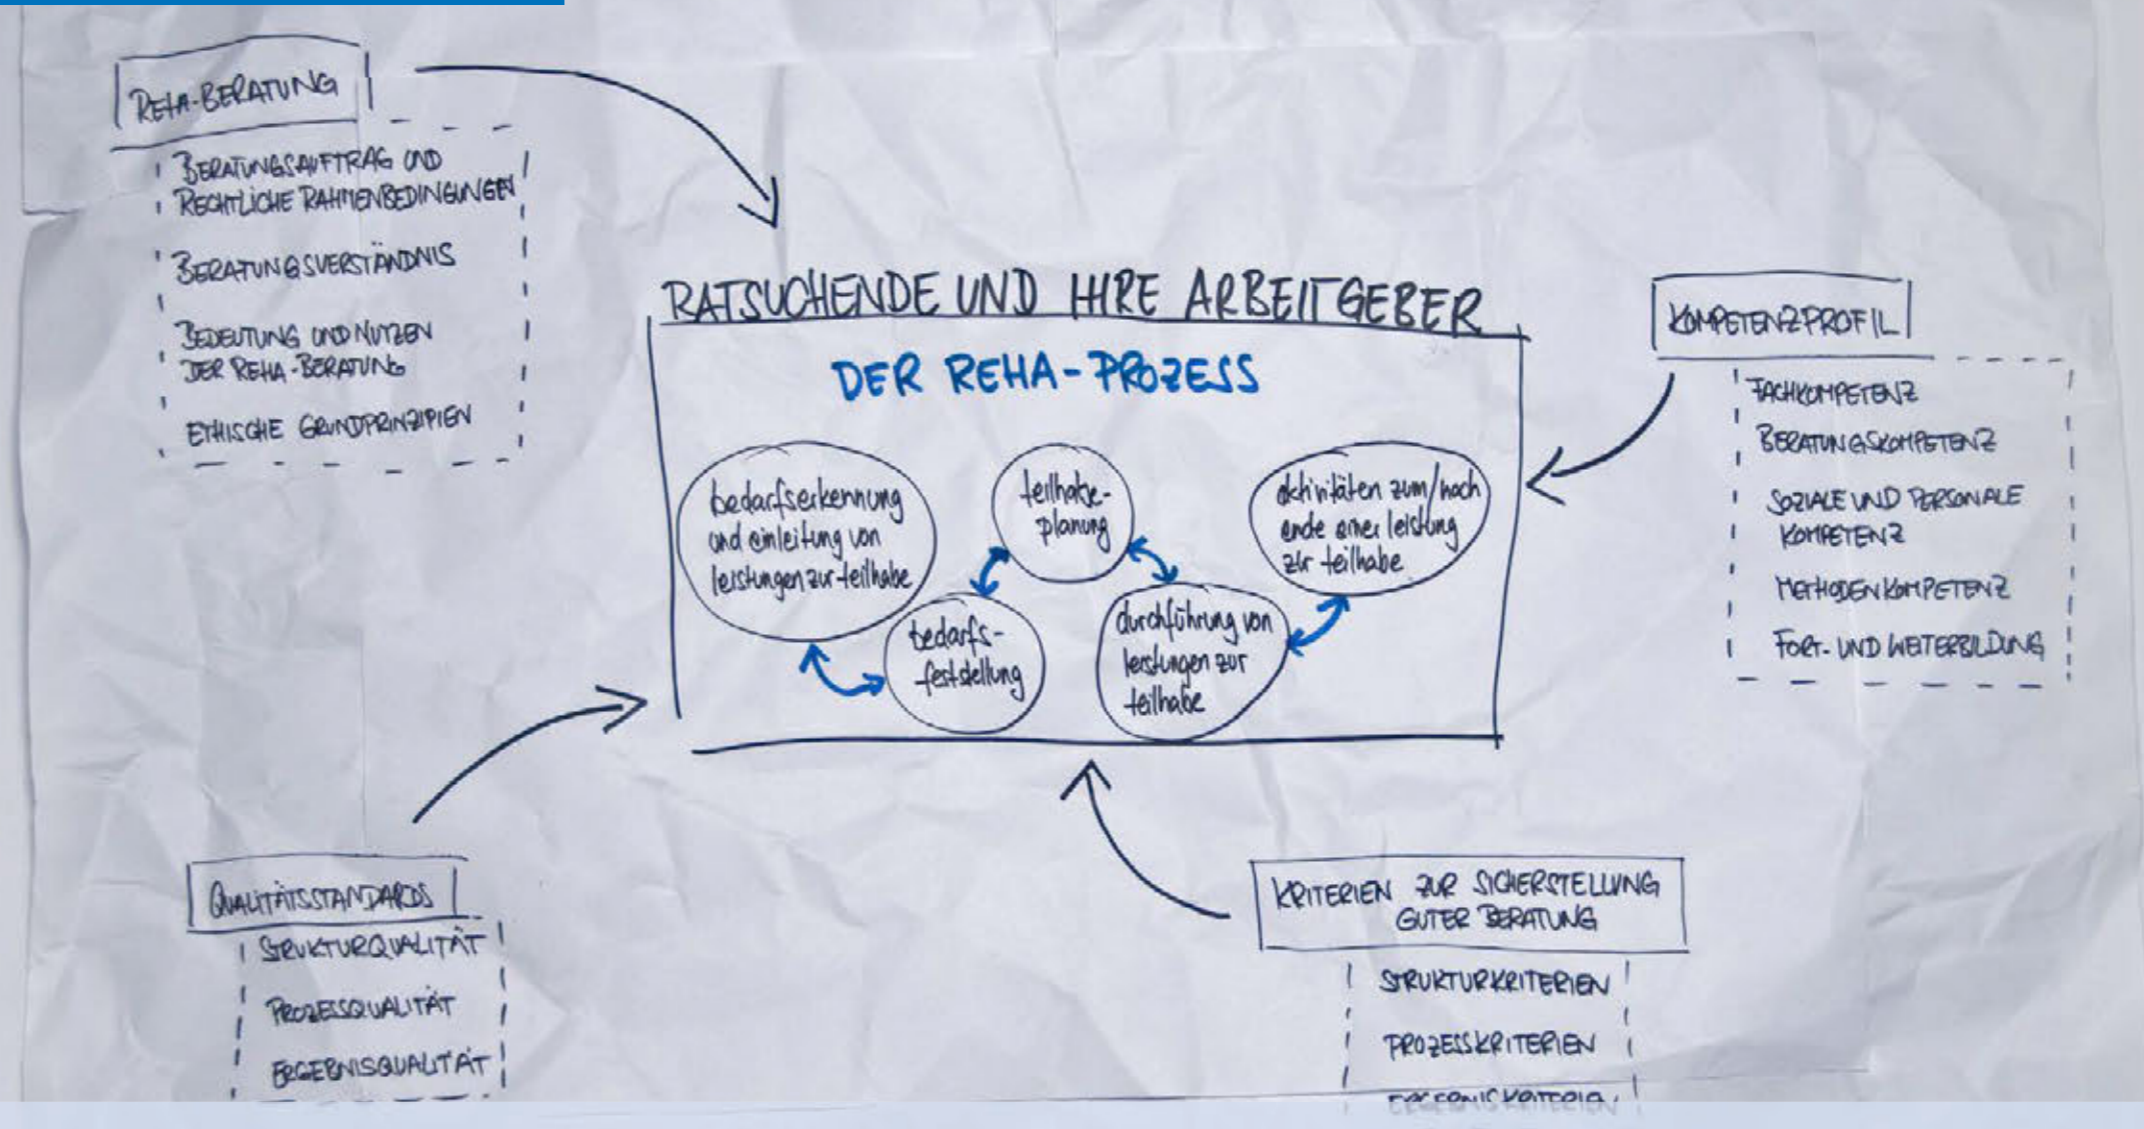 REHA-BERATUNG
BERATUNGSAUFTRAG UND
RECHTLICHE RAHMENBEDINGUNGEN
BERATUNGSVERSTÄNDNIS
BEDEUTUNG UND NUTZEN
DER REHA-BERATUNG
ETHISCHE GRUNDPRINZIPIEN
RATSUCHENDE UND IHRE ARBEITGEBER
DER REHA-PROZESS
bedarfserkennung
und einleitung von
leistungen zur teilhabe
bedarfs-
feststellung
teilhabe-
planung
durchführung von
leistungen zur
teilhabe
aktivitäten zum/nach
ende einer leistung
zur teilhabe
KOMPETENZPROFIL
FACHKOMPETENZ
BERATUNGSKOMPETENZ
SOZIALE UND PERSONALE
KOMPETENZ
METHODENKOMPETENZ
FORT- UND WEITERBILDUNG
QUALITÄTSSTANDARDS
STRUKTURQUALITÄT
PROZESSQUALITÄT
ERGEBNISQUALITÄT
KRITERIEN ZUR SICHERSTELLUNG
GUTER BERATUNG
STRUKTURKRITERIEN
PROZESSKRITERIEN
ERGEBNISKRITERIEN